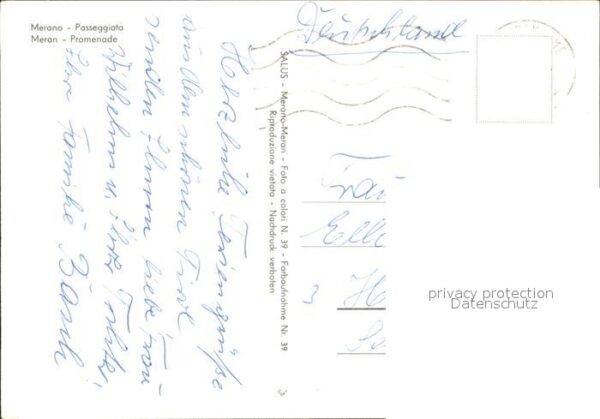 Merano - Passeggiata
Meran - Promenade
Deutschland
Herzliche Feriengrüße
aus dem schönen Tirol
senden Ihnen liebe Frau
Wilhelm u. Ihrer
Ihre Familie
SALUS - Merano-Meran - Foto a colori N. 39 - Farbaufnahme Nr. 39
Riproduzione vietata - Nachdruck verboten
Frau
Elle
3 H
privacy protection
Datenschutz